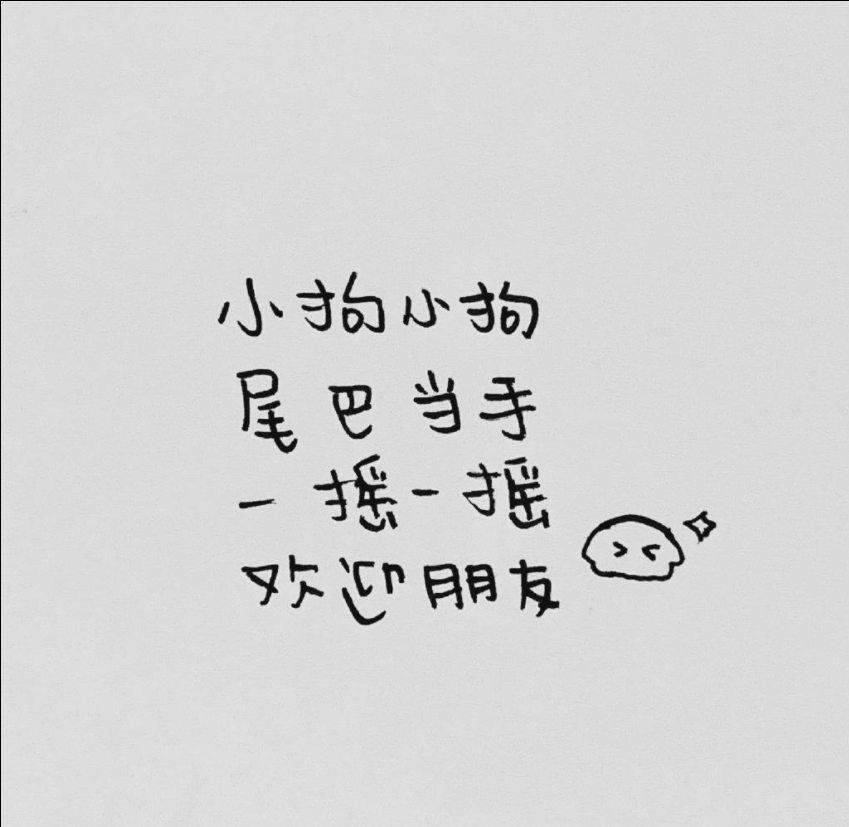 小狗小狗
尾巴当手
一摇一摇
欢迎朋友